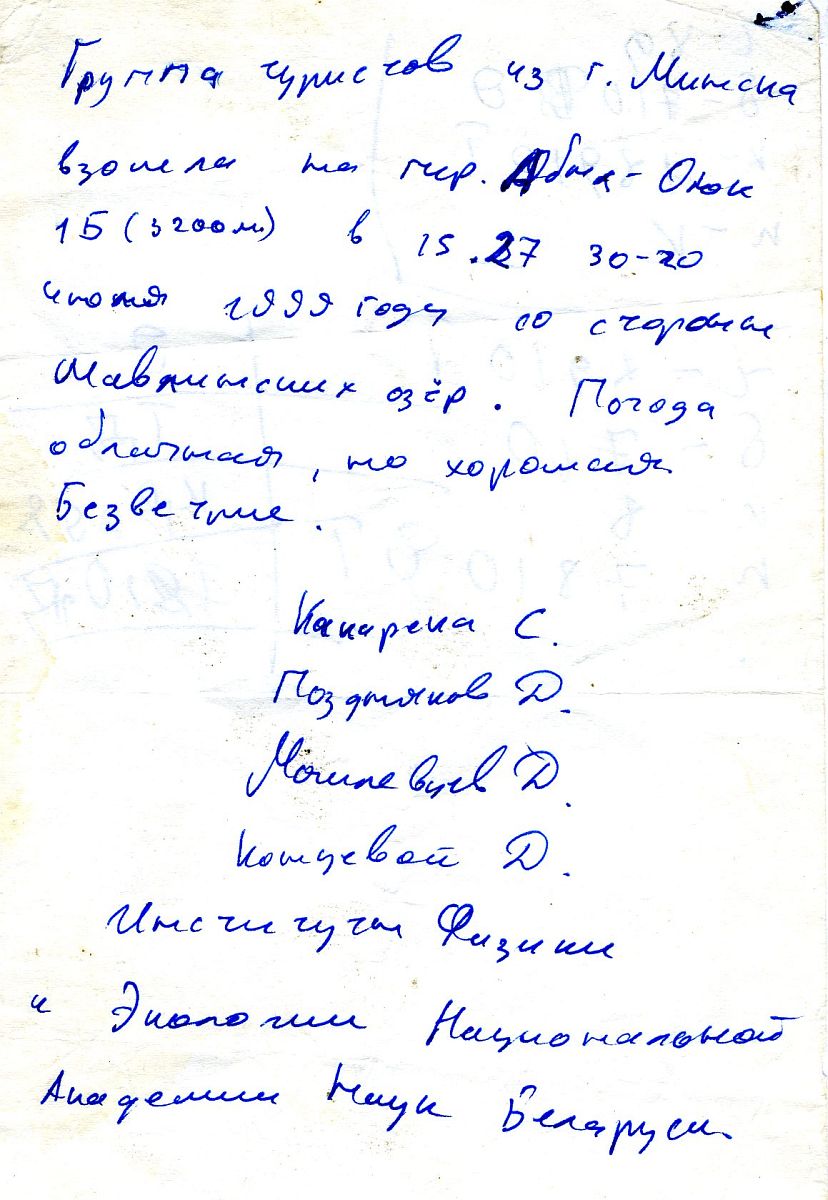 Группа туристов из г. Минска
взошла на пер. Абыл-Оюк
1Б (3200м) в 15.27 30-го
июля 1999 году со стороны
Шавлинских озёр. Погода
облачная, но хорошая
Безветрие.
Какарека С.
Поздняков Д.
Могилевцев Д.
Концевой Д.
Институты Физики
и Экологии Национальной
Академии Наук Беларуси